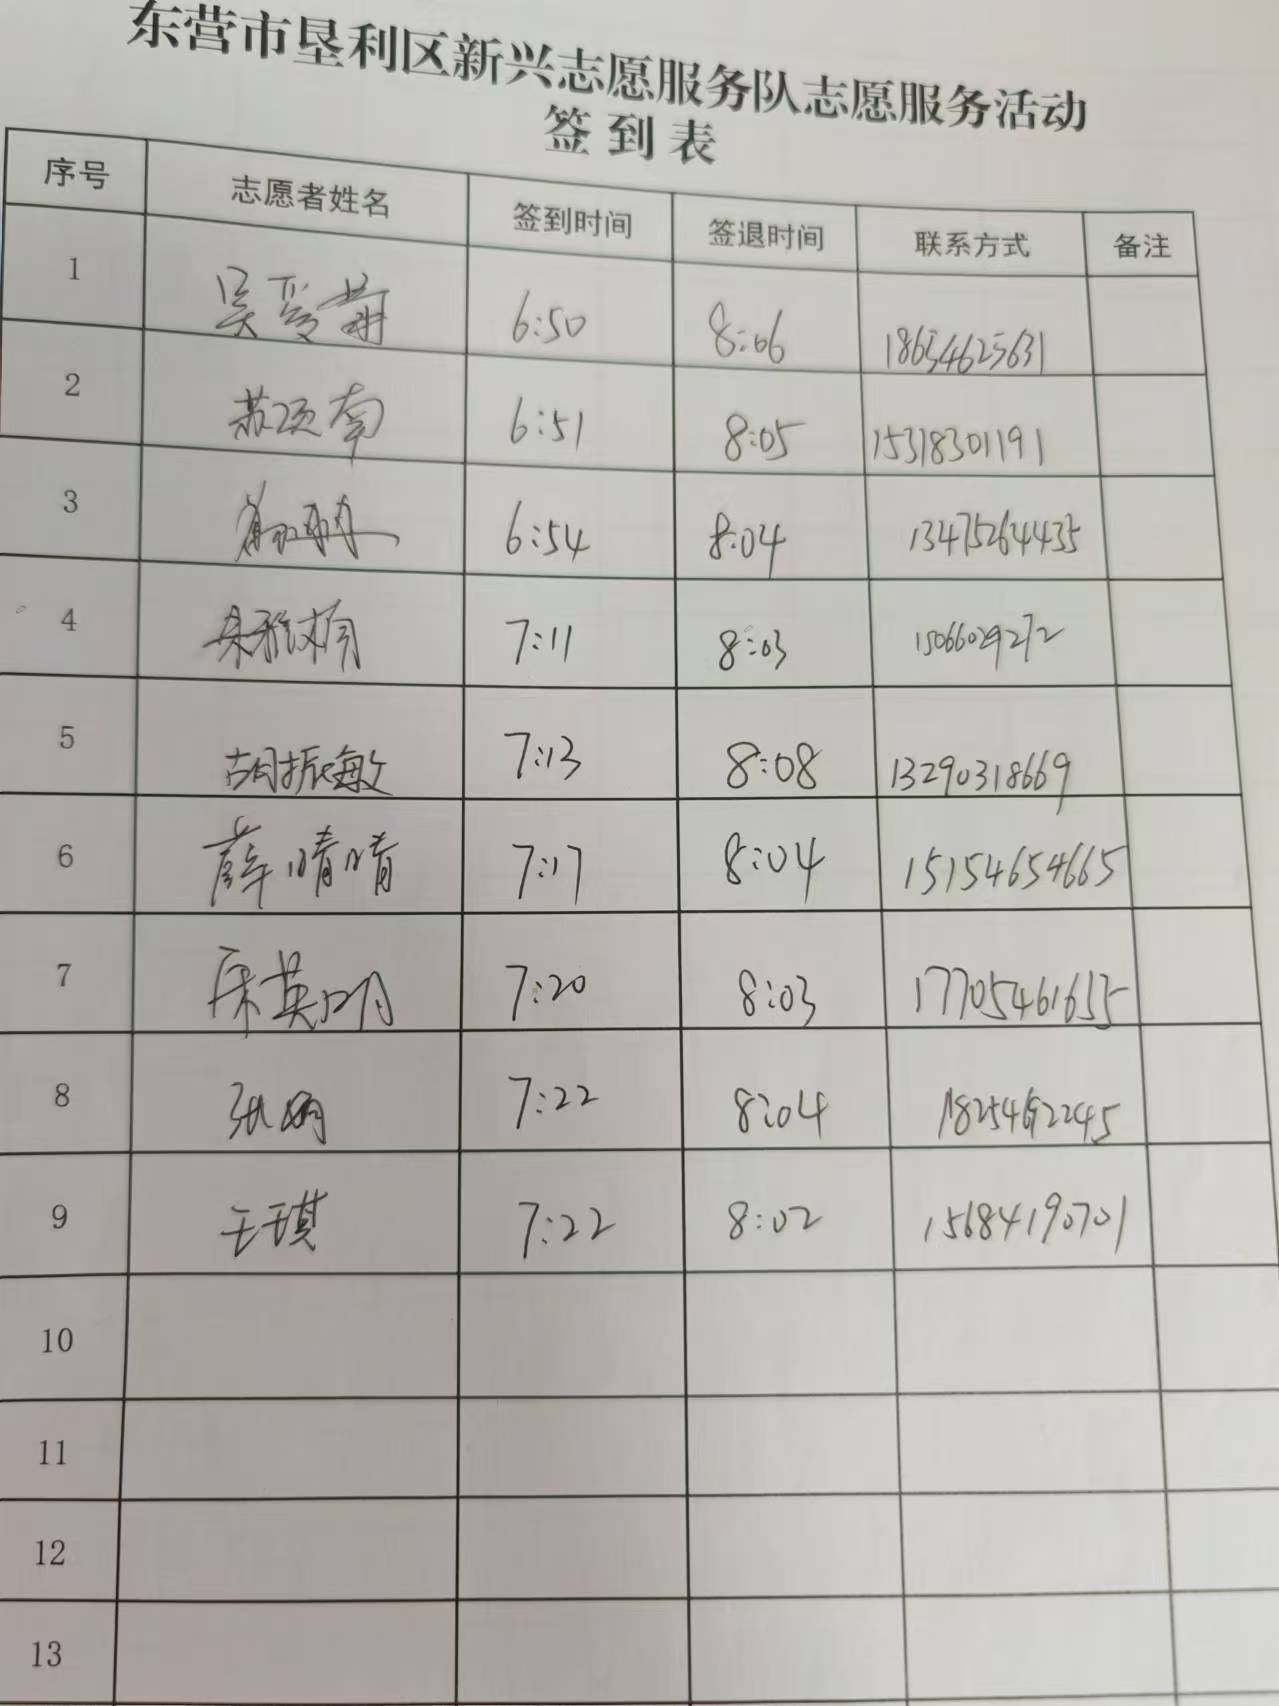 东营市垦利区新兴志愿服务队志愿服务活动
签到表
序号 志愿者姓名 签到时间 签退时间 联系方式 备注
1 吴爱 6:50 8:06 18654625631
2 苏 南 6:51 8:05 15318301191
3 6:54 8:04 13475264435
4 朱雅楠 7:11 8:03 15066029272
5 胡振敏 7:13 8:08 13290318669
6 薛晴晴 7:17 8:04 15154654665
7 英明 7:20 8:03 17705461655
8 张娟 7:22 8:04 2245
9 王琪 7:22 8:02 15684190701
10
11
12
13